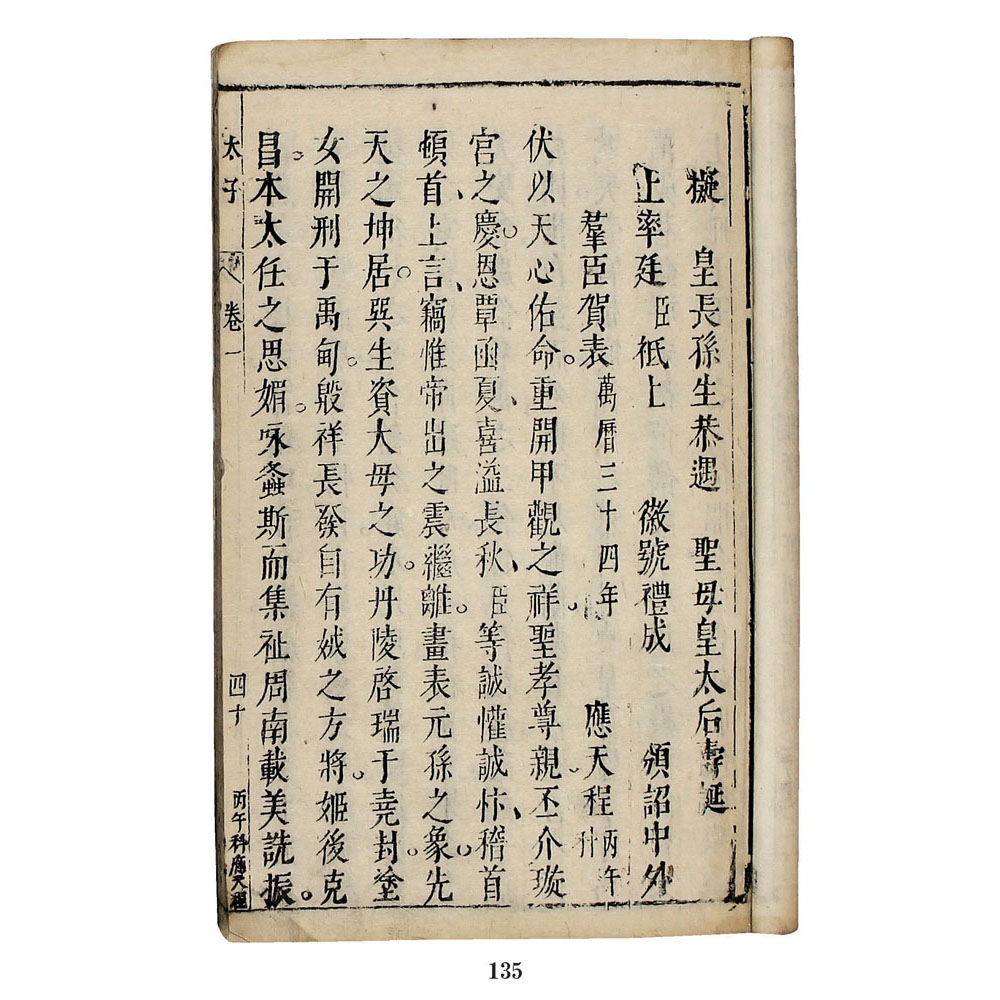 擬　皇長孫生恭遇　聖母皇太后壽誕
上率廷臣祗上　徽號禮成　頒詔中外
羣臣賀表萬曆三十四年　應天程丙午科
伏以天心佑命重開甲觀之祥。聖孝尊親丕介璇
宮之慶。恩覃函夏、喜溢長秋、臣等誠懽誠忭、稽首
頓首、上言、竊惟帝出之震繼離。畫表元孫之象。先
天之坤居。巽生資大母之功。丹陵啓瑞于堯封。塗
女開刑于禹甸。殷祥長發自有娀之方將。姬後克
昌。本太任之思媚。咏螽斯而集祉周南載美詵振。
太子
卷一
四十
丙午科應天程
135